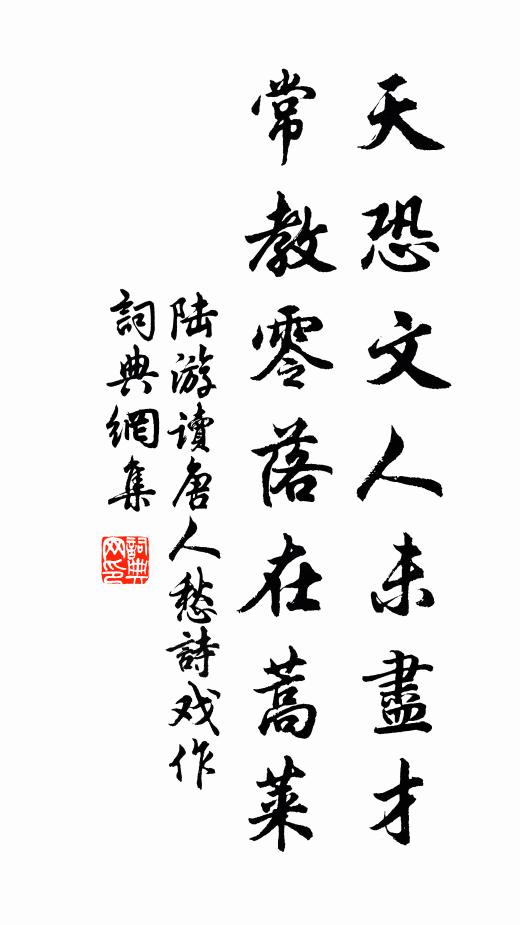 天恐文人未盡才
常教零落在蒿萊
陆游讀唐人愁詩戏作
詞典網集
詞典网印